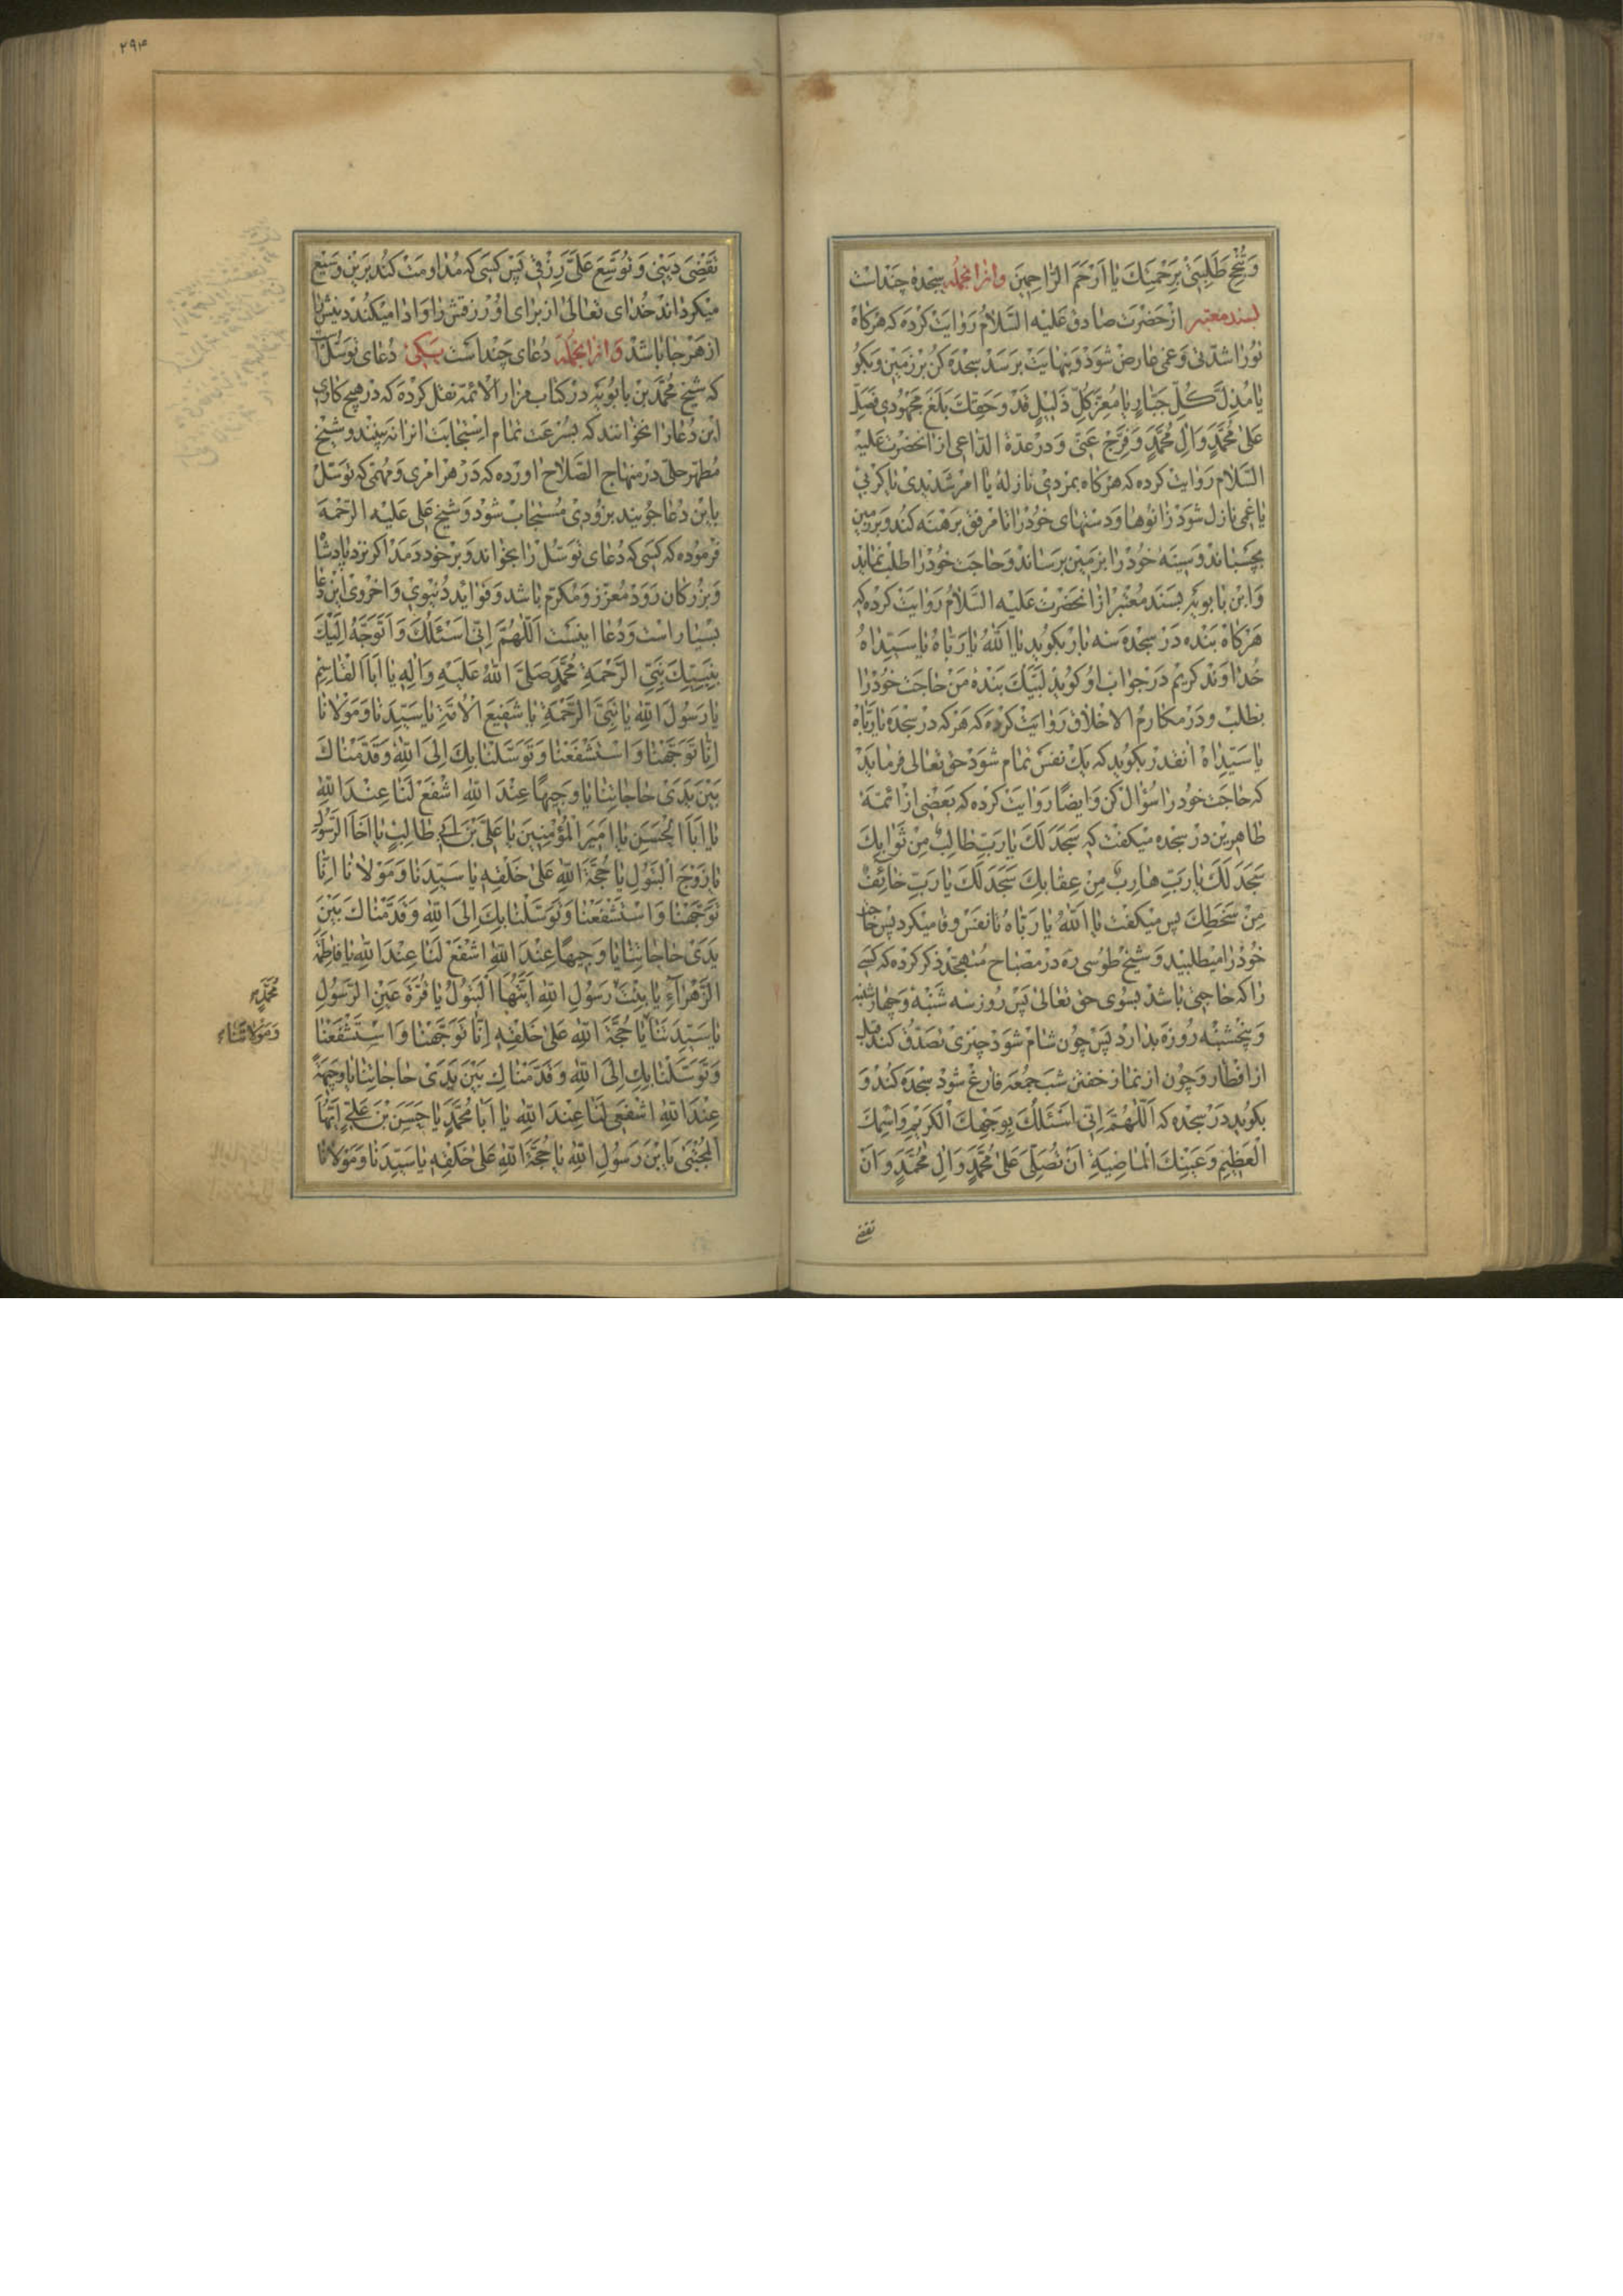 وَتُنْجِحَ طَلِبَتِی بِرَحْمَتِكَ یَا اَرْحَمَ الرّٰاحِمِینَ وازانجمله سجدهٔ چنداست
بسند معتبر ازحضرت صادق علیه السّلام روایت کرده که هرکاه
تورا شدّتی وغمی عارض شود وبنهایت برسد سجده کن برزمین وبکو
یٰا مُذِلَّ كُلِّ جَبّٰارٍ یٰا مُعِزَّ كُلِّ ذَلِیلٍ قَدْ وَحَقِّكَ بَلَغَ مَجْهُودِی فَصَلِّ
عَلىٰ مُحَمَّدٍ وَاٰلِ مُحَمَّدٍ وَفَرِّجْ عَنِّی ودرعدة الدّاعی ازانحضرت علیه
السّلام روایت کرده که هرکاه بمردی نازلهٔ یا امرشدیدی یا کربی
یا غمی نازل شود زانوها ودستهای خودرا تا مرفق برهنه کند وبرزمین
بچسباند وسینهٔ خودرا بزمین برساند وحاجت خودرا طلب نماید
وابن بابویه بسند معتبر ازانحضرت علیه السّلام روایت کرده که
هرکاه بنده درسجده سه بار بکوید یٰا اَللّٰهُ یٰا رَبّٰاهُ یٰا سَیِّدٰاهُ
خداوند کریم درجواب او کوید لبّیك بندهٔ من حاجت خودرا
بطلب ودرمکارم الاخلاق روایت کرده که هرکه درسجده یٰا رَبّٰاهُ
یٰا سَیِّدٰاهُ انقدر بکوید که یك نفس تمام شود حق تعالی فرماید
که حاجت خودرا سؤال کن وایضًا روایت کرده که بعضی ازائمّهٔ
طاهرین درسجده میکفت که سَجَدَ لَكَ یٰا رَبِّ طٰالِبٌ مِنْ ثَوٰابِكَ
سَجَدَ لَكَ یٰا رَبِّ هٰارِبٌ مِنْ عِقٰابِكَ سَجَدَ لَكَ یٰا رَبِّ خٰائِفٌ
مِنْ سَخَطِكَ پس میکفت یٰا اَللّٰهُ یٰا رَبّٰاهُ تا نفس وفا میکرد پس حاجت
خودرا میطلبید وشیخ طوسی ره درمصباح متهجد ذکر کرده که کسی
راکه حاجتی باشد بسوی حق تعالی پس روز سه شنبه وچهارشنبه
وپنجشنبه روزه بدارد پس چون شام شود چیزی تصدّق کند قبل
ازافطار وچون ازنماز خفتن شب جمعه فارغ شود سجده کند و
بکوید درسجده که اَللّٰهُمَّ اِنِّی اَسْئَلُكَ بِوَجْهِكَ الْكَرِیمِ وَاسْمِكَ
الْعَظِیمِ وَعَیْنِكَ الْمٰاضِیَةِ اَنْ تُصَلِّیَ عَلىٰ مُحَمَّدٍ وَاٰلِ مُحَمَّدٍ وَاَنْ
تقضی
۲۹۴
تَقْضِیَ دَیْنِی وَتُوَسِّعَ عَلَیَّ رِزْقِی پس کسی که مداومت کند برین وسیع
میکرداند خدای تعالی ازبرای او رزقش را وادا میکند دینش را
ازهرجا باشد وازانجمله دعای چنداست یکی دعای توسّلات
که شیخ محمّد بن بابویه درکتاب مزار الائمّة نقل کرده که درهیچ کاری
این دعارا نخوانند که بسرعت تمام استجابت انرا نه بینند وشیخ
مطهر حلی درمنهاج الصّلاح اورده که درهرامری ومهمّی که توسّل
باین دعا جویند بزودی مستجاب شود وشیخ علی علیه الرّحمة
فرموده که کسی که دعای توسّل را بخواند وبرخود دمد اکر نزد پادشاه
وبزرکان رود معزز ومکرّم باشد وفواید دنیوی واخروی این دعا
بسیاراست ودعا اینست اَللّٰهُمَّ اِنِّی اَسْئَلُكَ وَاَتَوَجَّهُ اِلَیْكَ
بِنَبِیِّكَ نَبِیِّ الرَّحْمَةِ مُحَمَّدٍ صَلَّى اللّٰهُ عَلَیْهِ وَاٰلِهِ یٰا اَبَا الْقٰاسِمِ
یٰا رَسُولَ اللّٰهِ یٰا نَبِیَّ الرَّحْمَةِ یٰا شَفِیعَ الْاُمَّةِ یٰا سَیِّدَنٰا وَمَوْلٰانٰا
اِنّٰا تَوَجَّهْنٰا وَاسْتَشْفَعْنٰا وَتَوَسَّلْنٰا بِكَ اِلَى اللّٰهِ وَقَدَّمْنٰاكَ
بَیْنَ یَدَیْ حٰاجٰاتِنٰا یٰا وَجِیهًا عِنْدَ اللّٰهِ اشْفَعْ لَنٰا عِنْدَ اللّٰهِ
یٰا اَبَا الْحَسَنِ یٰا اَمِیرَ الْمُؤْمِنِینَ یٰا عَلِیَّ بْنَ اَبِی طٰالِبٍ یٰا اَخَا الرَّسُولِ
یٰا زَوْجَ الْبَتُولِ یٰا حُجَّةَ اللّٰهِ عَلىٰ خَلْقِهِ یٰا سَیِّدَنٰا وَمَوْلٰانٰا اِنّٰا
تَوَجَّهْنٰا وَاسْتَشْفَعْنٰا وَتَوَسَّلْنٰا بِكَ اِلَى اللّٰهِ وَقَدَّمْنٰاكَ بَیْنَ
یَدَیْ حٰاجٰاتِنٰا یٰا وَجِیهًا عِنْدَ اللّٰهِ اشْفَعْ لَنٰا عِنْدَ اللّٰهِ یٰا فٰاطِمَةُ
الزَّهْرٰآءُ یٰا بِنْتَ رَسُولِ اللّٰهِ اَیَّتُهَا الْبَتُولُ یٰا قُرَّةَ عَیْنِ الرَّسُولِ
مُحَمَّدٍ
یٰا سَیِّدَتَنٰا یٰا حُجَّةَ اللّٰهِ عَلىٰ خَلْقِهِ اِنّٰا تَوَجَّهْنٰا وَاسْتَشْفَعْنٰا
وَمَوْلٰاتَنٰا
وَتَوَسَّلْنٰا بِكِ اِلَى اللّٰهِ وَقَدَّمْنٰاكِ بَیْنَ یَدَیْ حٰاجٰاتِنٰا یٰا وَجِیهَةً
عِنْدَ اللّٰهِ اشْفَعِی لَنٰا عِنْدَ اللّٰهِ یٰا اَبٰا مُحَمَّدٍ یٰا حَسَنَ بْنَ عَلِیٍّ اَیُّهَا
الْمُجْتَبىٰ یَا بْنَ رَسُولِ اللّٰهِ یٰا حُجَّةَ اللّٰهِ عَلىٰ خَلْقِهِ یٰا سَیِّدَنٰا وَمَوْلٰانٰا